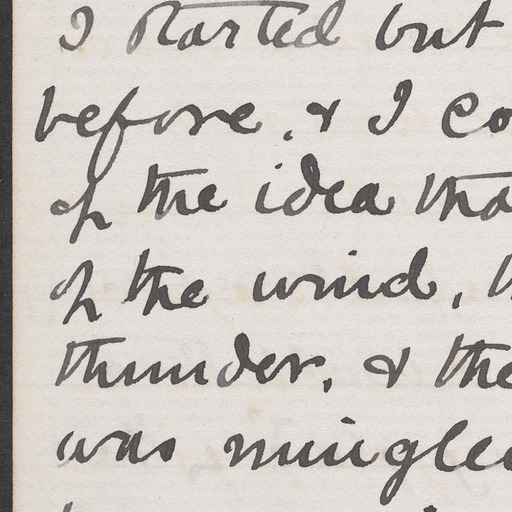 I started but
before, & I co
of the idea tha
of the wind, t
thunder, & the
was mingled